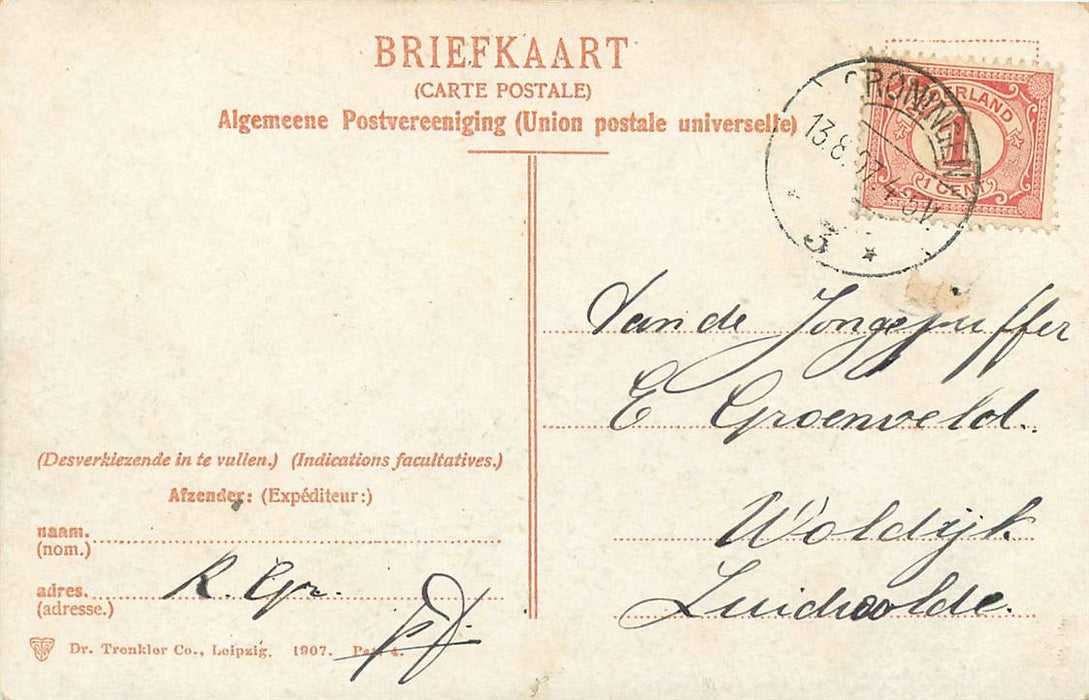 BRIEFKAART
(CARTE POSTALE)
Algemeene Postvereeniging (Union postale universelle)
GRONINGEN
13.8.07.4-5V.
3
NEDERLAND
1
1 CENT
Van de Jongejuffer
E Groenveld.
Woldijk
Zuidwolde.
(Desverkiezende in te vullen.) (Indications facultatives.)
Afzender: (Expéditeur:)
naam.
(nom.)
adres. R. Gr.
(adresse.)
Dr. Trenkler Co., Leipzig. 1907.